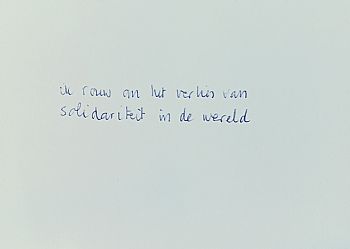 ik rouw om het verlies van
solidariteit in de wereld